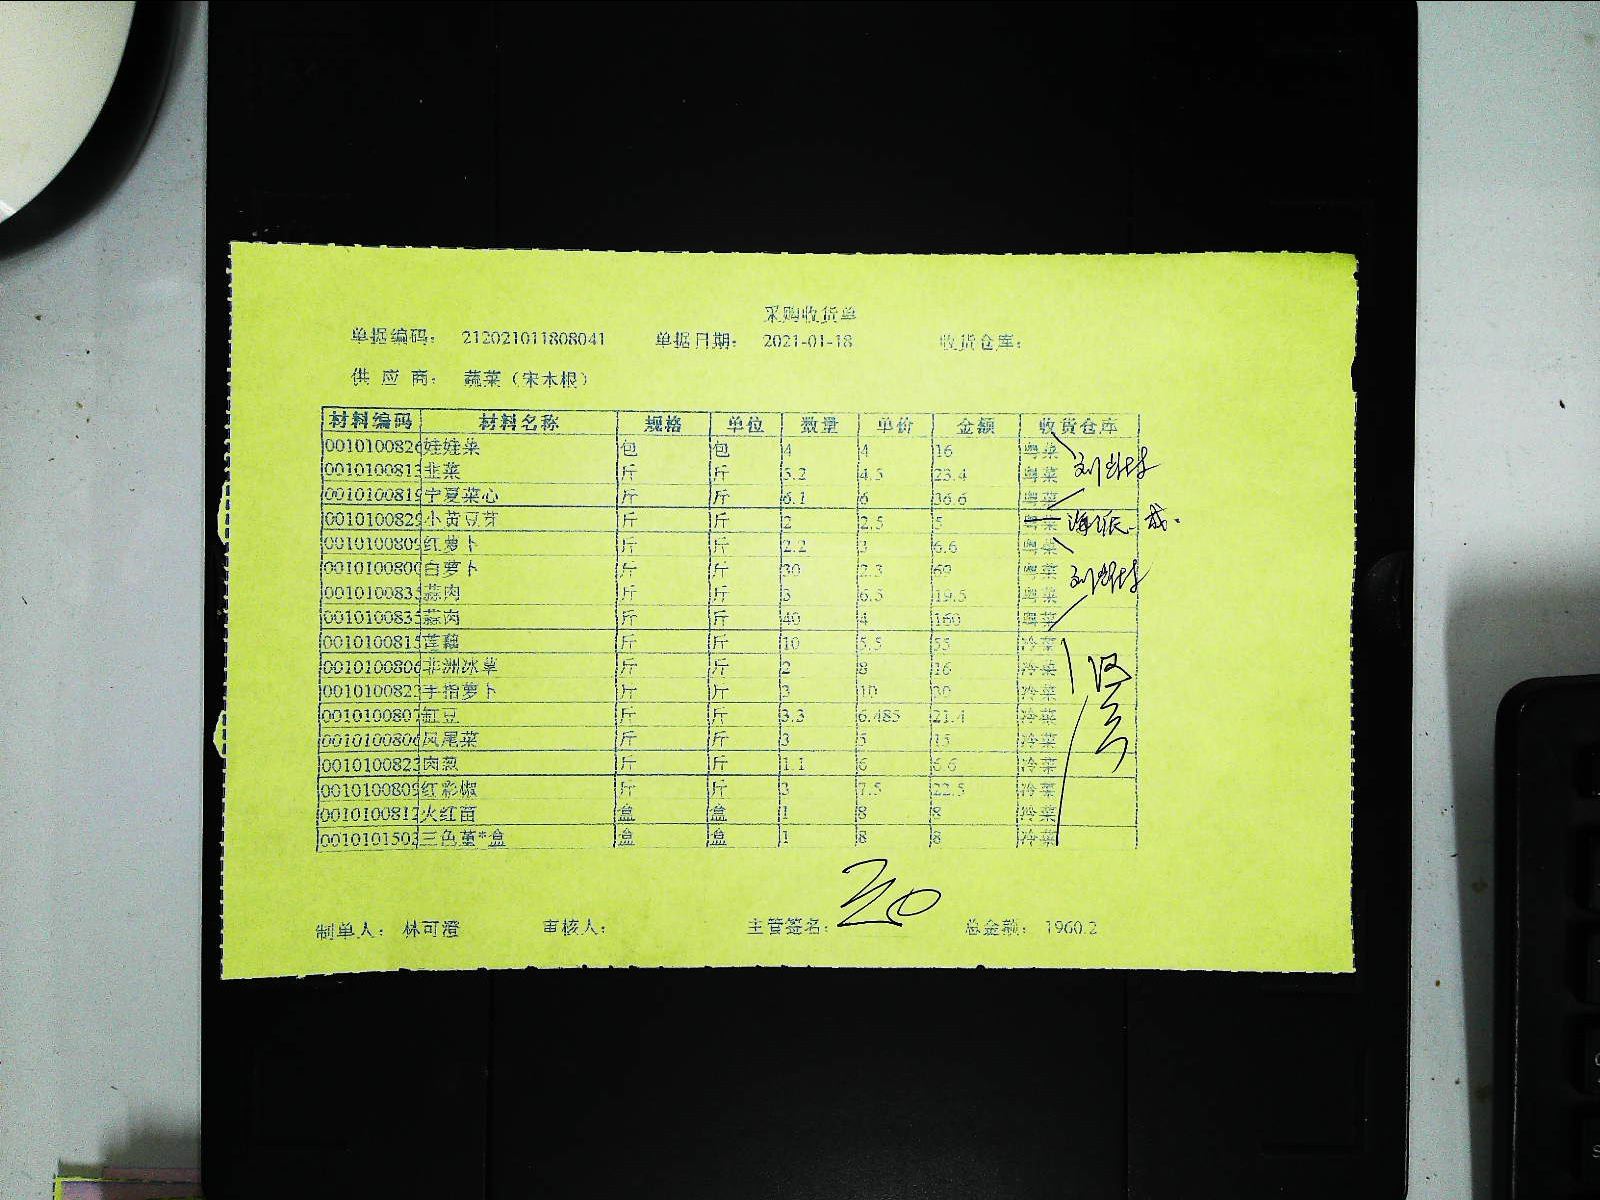 采购收货单
单据编码： 212021011808041 单据日期： 2021-01-18 收货仓库：
供 应 商： 蔬菜（宋木根）
材料编码 材料名称 规格 单位 数量 单价 金额 收货仓库
0010100826 娃娃菜 包 包 4 4 16 粤菜
001010081 韭菜 斤 斤 5.2 4.5 23.4 粤菜
0010100819 宁夏菜心 斤 斤 6.1 6 36.6 粤菜
001010082 小黄豆芽 斤 斤 2 2.5 5 粤菜
0010100809 红萝卜 斤 斤 2.2 3 6.6 粤菜
001010080 白萝卜 斤 斤 30 2.3 69 粤菜
001010083 蒜肉 斤 斤 3 6.5 19.5 粤菜
001010083 蒜肉 斤 斤 40 4 160 粤菜
001010081 莲藕 斤 斤 10 5.5 55 冷菜
001010080 非洲冰草 斤 斤 2 8 16 冷菜
001010082 手指萝卜 斤 斤 3 10 30 冷菜
001010080 缸豆 斤 斤 3.3 6.485 21.4 冷菜
001010080 凤尾菜 斤 斤 3 5 15 冷菜
001010082 肉葱 斤 斤 1.1 6 6.6 冷菜
001010080 红彩椒 斤 斤 3 7.5 22.5 冷菜
001010081 火红苗 盒 盒 1 8 8 冷菜
001010150 三色堇*盒 盒 盒 1 8 8 冷菜
制单人： 林可澄 审核人： 主管签名： 总金额： 1960.2